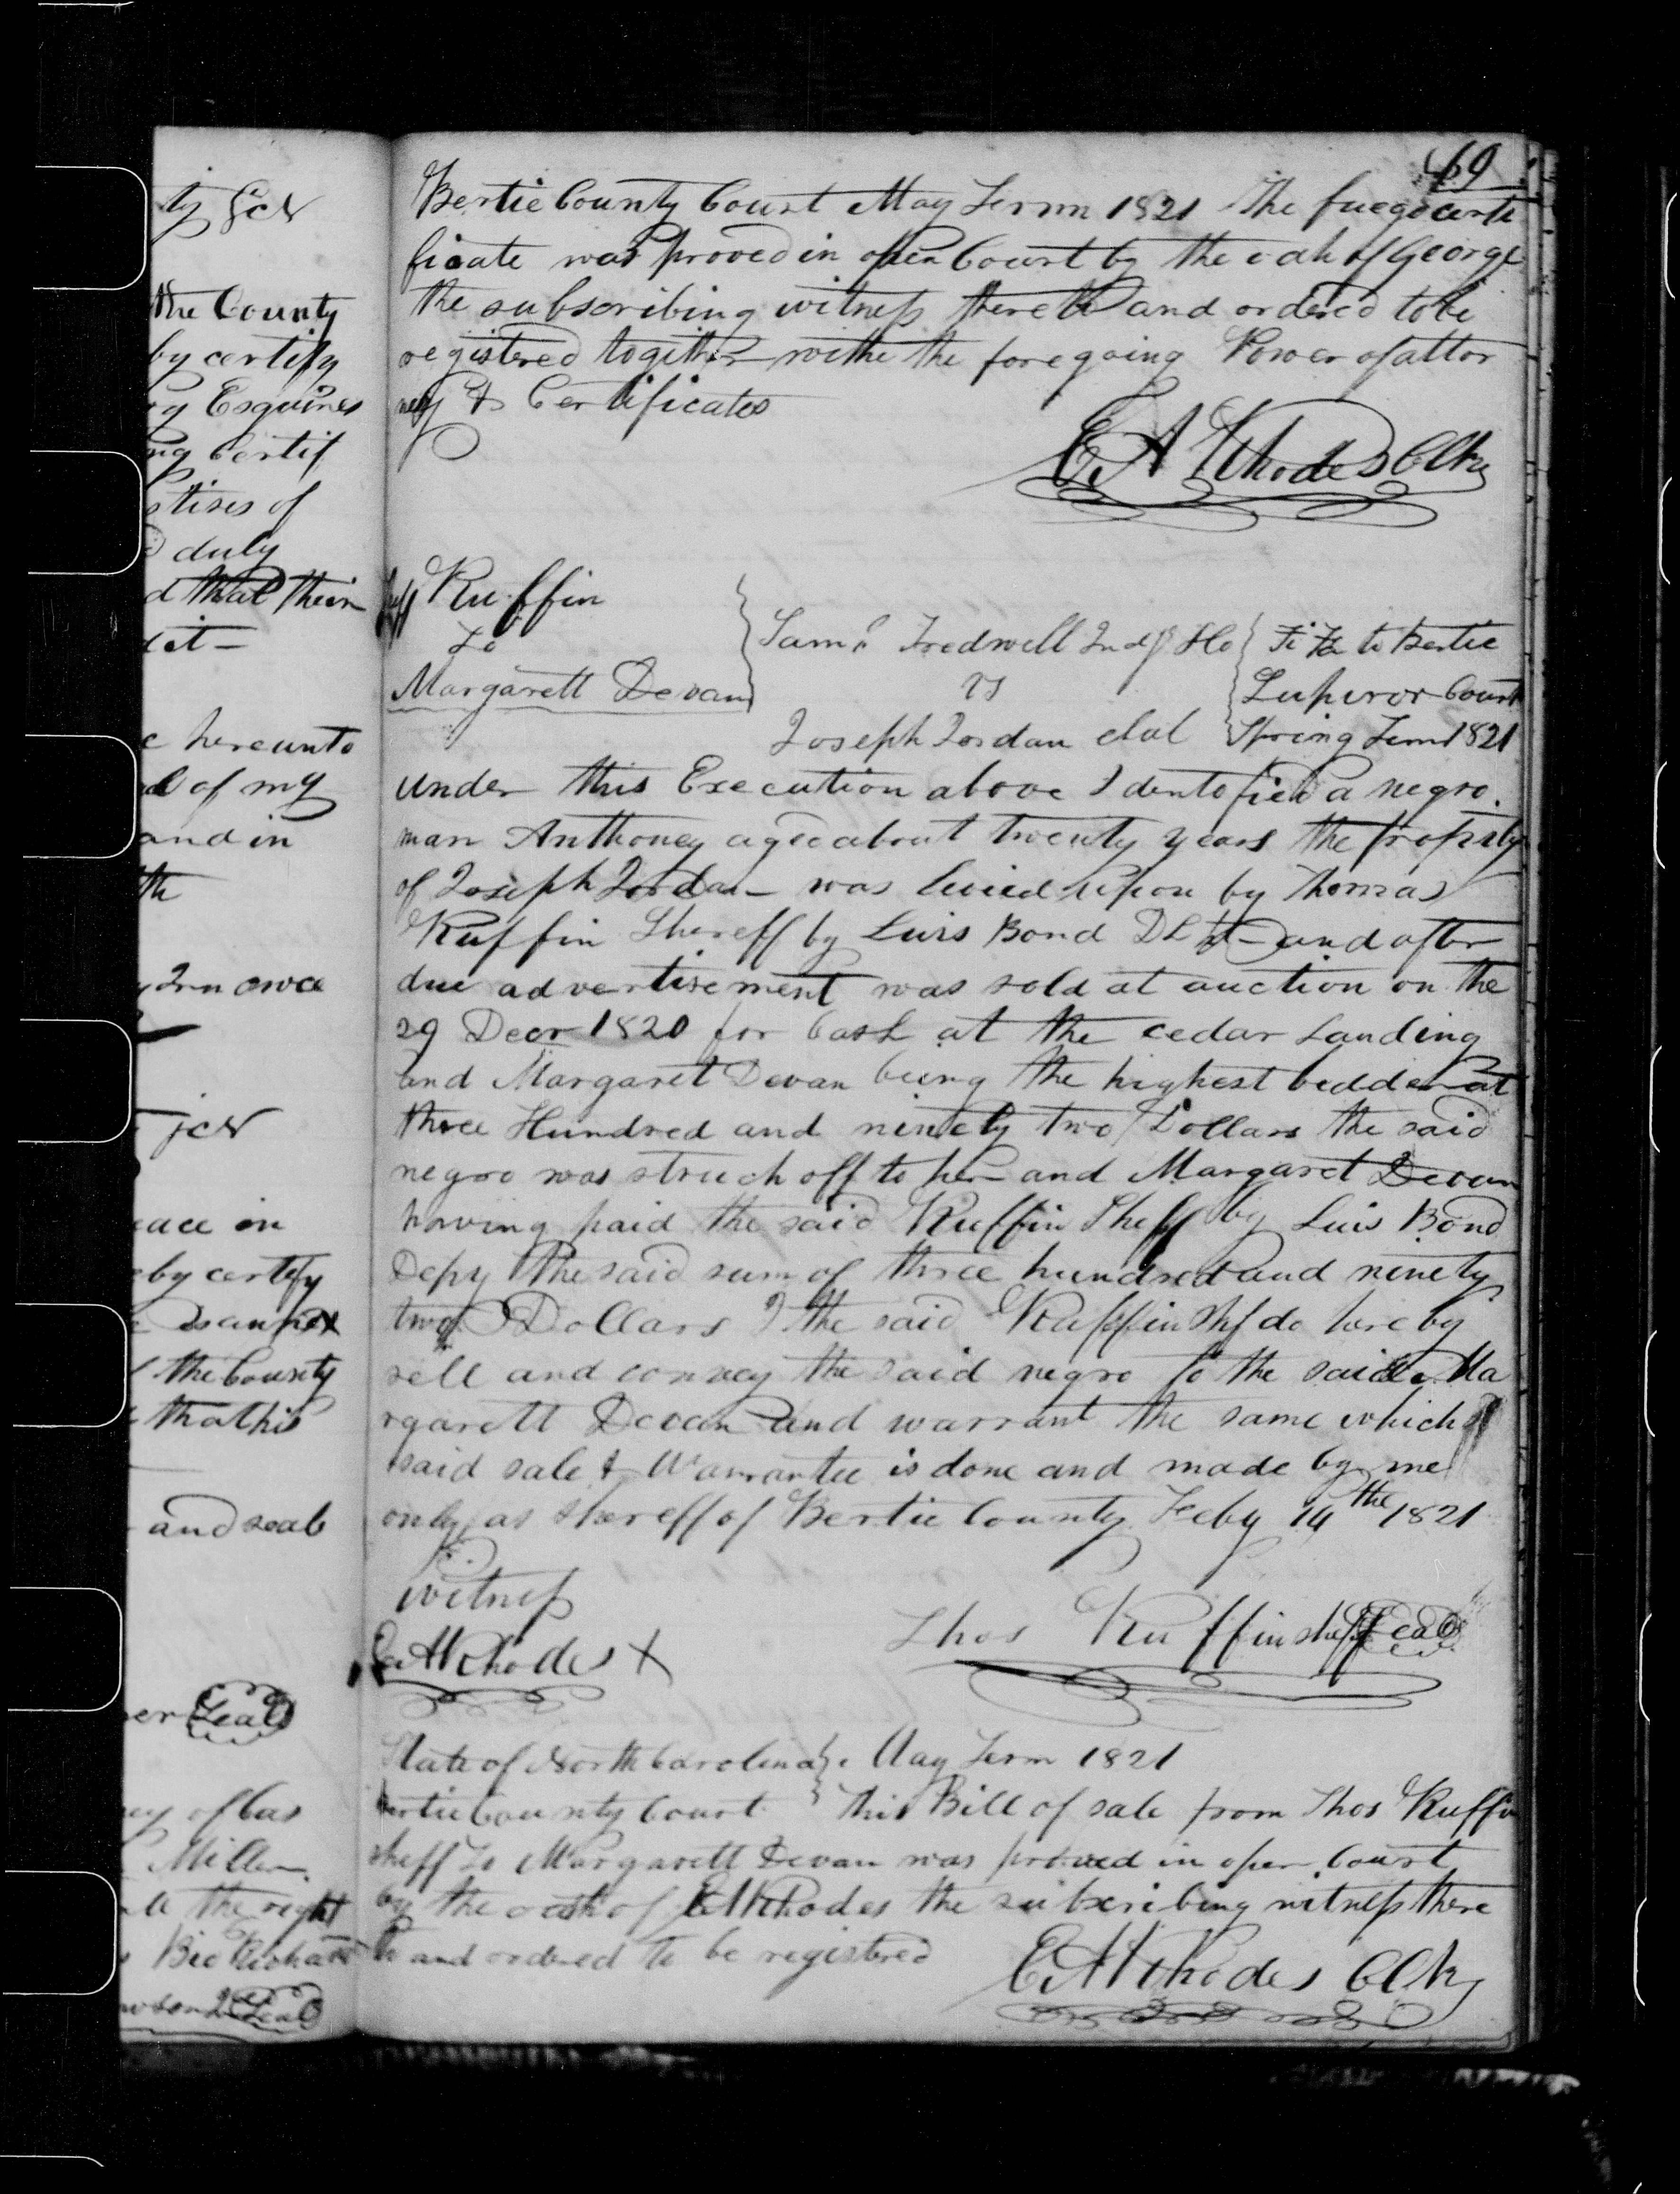 69
ty Sct
the County
by certify
ry Esquires
ng Certif
stises of
duly
d that their
dit —
e hereunto
al of my
and in
th
Sct
eace in
eby certify
annex
the County
that his
and seal
er Seal
ey of Cas
Miller
le the right
Seal
Bertie County Court May Term 1821 The fuego certi
ficate was proved in open Court by the oah of George
the subscribing witness thereto and ordered to be
registered togither withe the foregoing Power of attor
ney & Certificates
E A Rhodes Clk
Sheff Ruffin
To
Margarett Devan
Saml. Tredwell Indf Ho
vs
Joseph Jordan elal
Fi Fa to Bertie
Superor Court
Spring Term 1821
under this Execution above Identofied a negro
man Anthoney aged about twenty years the proprty
of Joseph Jordan was levied upon by Thomas
Ruffin Shereff by Luis Bond D and after
due advertisement was sold at auction on the
29 Decr 1820 for Cash at the cedar Landing
and Margaret Devan being the highest bedder at
three Hundred and ninety two Dollars the said
negro was struck off to her and Margaret Devan
having paid the said Ruffin Sheff by Luis Bond
Depy the said sum of three hundred and ninety
two Dollars I the said Ruffin Shf do here by
sell and convey the said negro to the said Ma
rgarett Devan and warrant the same which
said sale & Warrantee is done and made by me
only as shereff of Bertie County Feby 14the 1821
Witness
E A Rhodes X
Thos Ruffin sheff Seal
State of North Carolina May Term 1821
Bertie County Court This Bill of sale from Thos Ruffin
sheff To Margarett Devan was proved in open Court
by the oath of E A Rhodes the subscribing witness there
to and ordered to be registered
E A Rhodes Clk